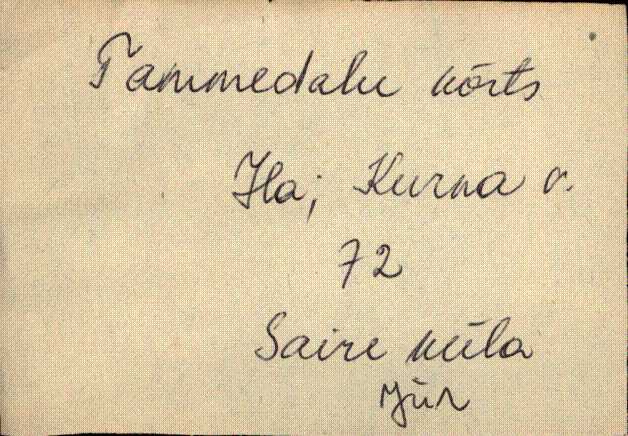 Tammedalu kõrts
Jla; Kurna v.
72
Saire küla
Jür